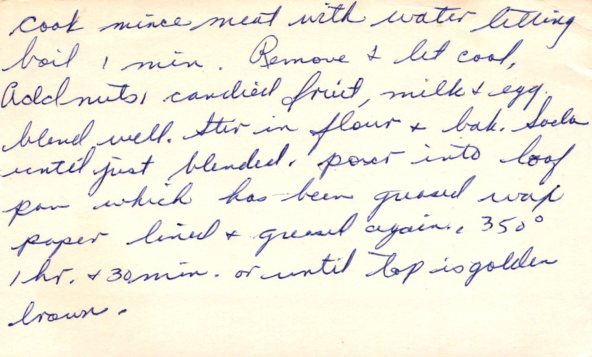 cook mince meat with water letting
boil 1 min. Remove & let cool,
Add nuts, candied fruit, milk & egg.
blend well. Stir in flour & bak. Soda
until just blended. pour into loaf
pan which has been greased wax
paper lined & greased again. 350°
1 hr. & 30 min. or until top is golden
brown.